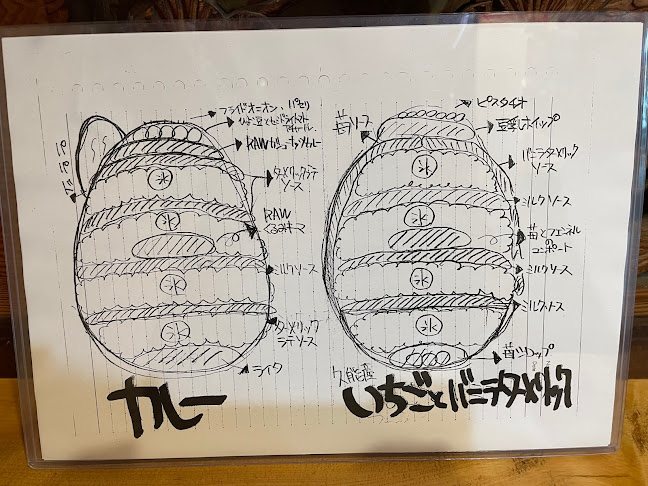 フライドオニオン、パセリ
ひよこ豆とドライトマト
RAW
ターメリックラテ
ソース
RAW
くるみキーマ
ミルクソース
ターメリック
ラテソース
ライタ
カレー
ピスタチオ
豆乳ホイップ
苺ソース
バニラターメリック
ソース
ミルクソース
苺とフェンネル
コンポート
ミルクソース
ミルクソース
苺シロップ
氷
氷
氷
氷
氷
氷
氷
氷
いちごとバニラターメリック